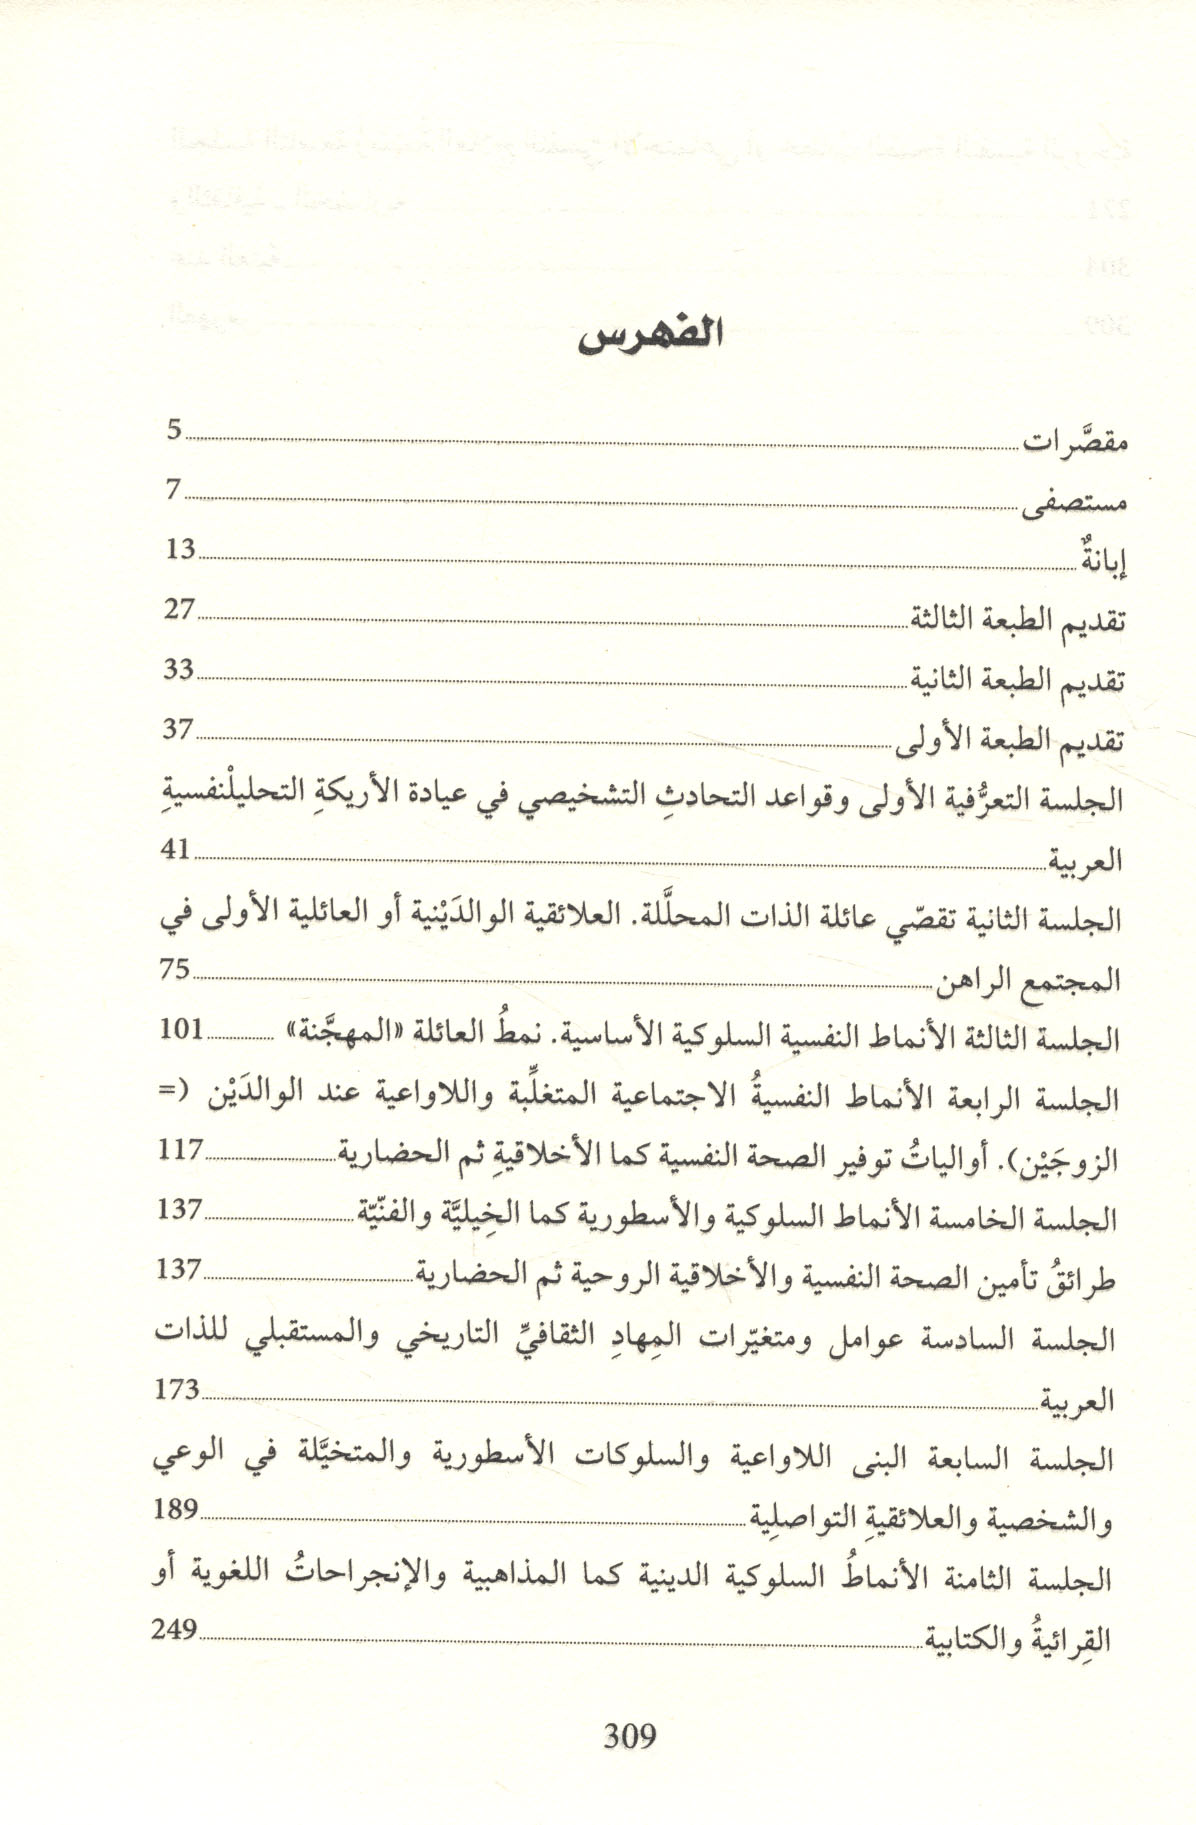 الفهرس
مقصَّرات 5
مستصفى 7
إبانةٌ 13
تقديم الطبعة الثالثة 27
تقديم الطبعة الثانية 33
تقديم الطبعة الأولى 37
الجلسة التعرُّفية الأولى وقواعد التحادثِ التشخيصي في عيادة الأريكةِ التحليلْنفسيةِ
العربية 41
الجلسة الثانية تقصّي عائلة الذات المحلَّلة. العلائقية الوالدَيْنية أو العائلية الأولى في
المجتمع الراهن 75
الجلسة الثالثة الأنماط النفسية السلوكية الأساسية. نمطُ العائلة «المهجَّنة» 101
الجلسة الرابعة الأنماط النفسيةُ الاجتماعية المتغلِّبة واللاواعية عند الوالدَيْن (=
الزوجَيْن). أوالياتُ توفير الصحة النفسية كما الأخلاقيةِ ثم الحضارية 117
الجلسة الخامسة الأنماط السلوكية والأسطورية كما الخِيليَّة والفنّيّة 137
طرائقُ تأمين الصحة النفسية والأخلاقية الروحية ثم الحضارية 137
الجلسة السادسة عوامل ومتغيّرات المِهادِ الثقافيِّ التاريخي والمستقبلي للذات
العربية 173
الجلسة السابعة البنى اللاواعية والسلوكات الأسطورية والمتخيَّلة في الوعي
والشخصية والعلائقيةِ التواصلِية 189
الجلسة الثامنة الأنماطُ السلوكية الدينية كما المذاهبية والإنجراحاتُ اللغوية أو
القِرائيةُ والكتابية 249
309